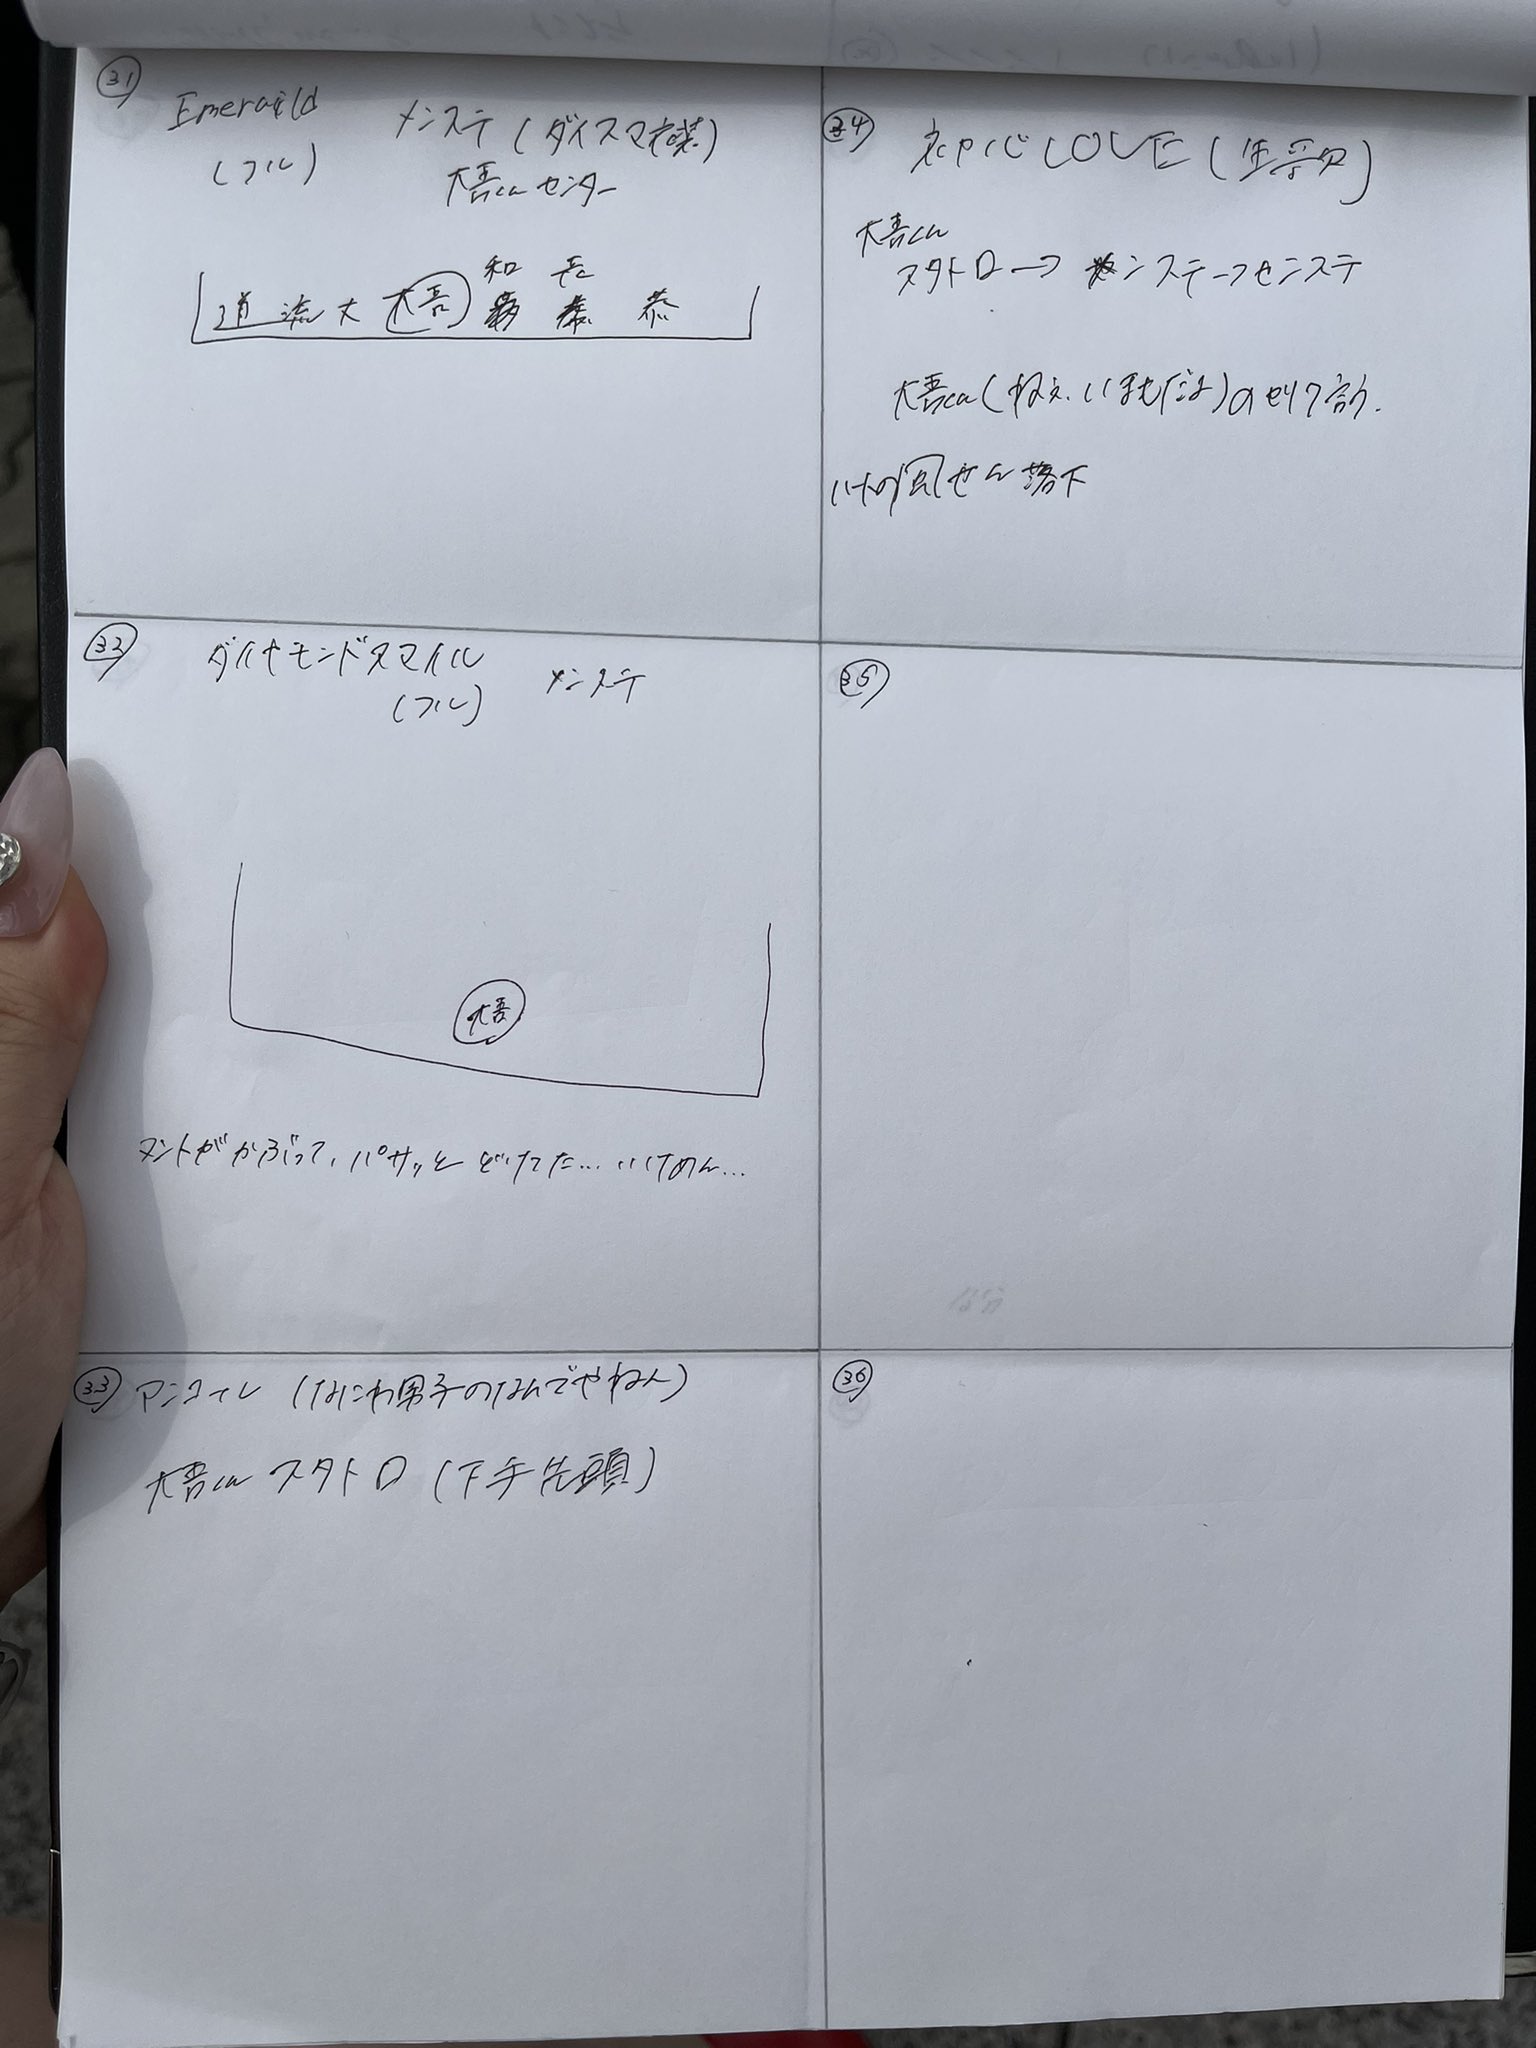 31
Emerald
(フル)
メンステ(ダイスマ衣装)
大吾くんセンター
和 長
道 流 大 大吾 恭
32
ダイヤモンドスマイル
(フル)
メンステ
大吾
マントがかぶって、パサッと どけてた… いけめん…
33 アンコール (なにわ男子のなんでやねん)
大吾くん スタトロ (下手先頭)
34 ネャバLOVE (生歌)
大吾くん
スタトロ→ メンステ→センステ
大吾くん(ねぇ、いまもだよ)のセリフ言う.
ハートの風せん落下
35
36